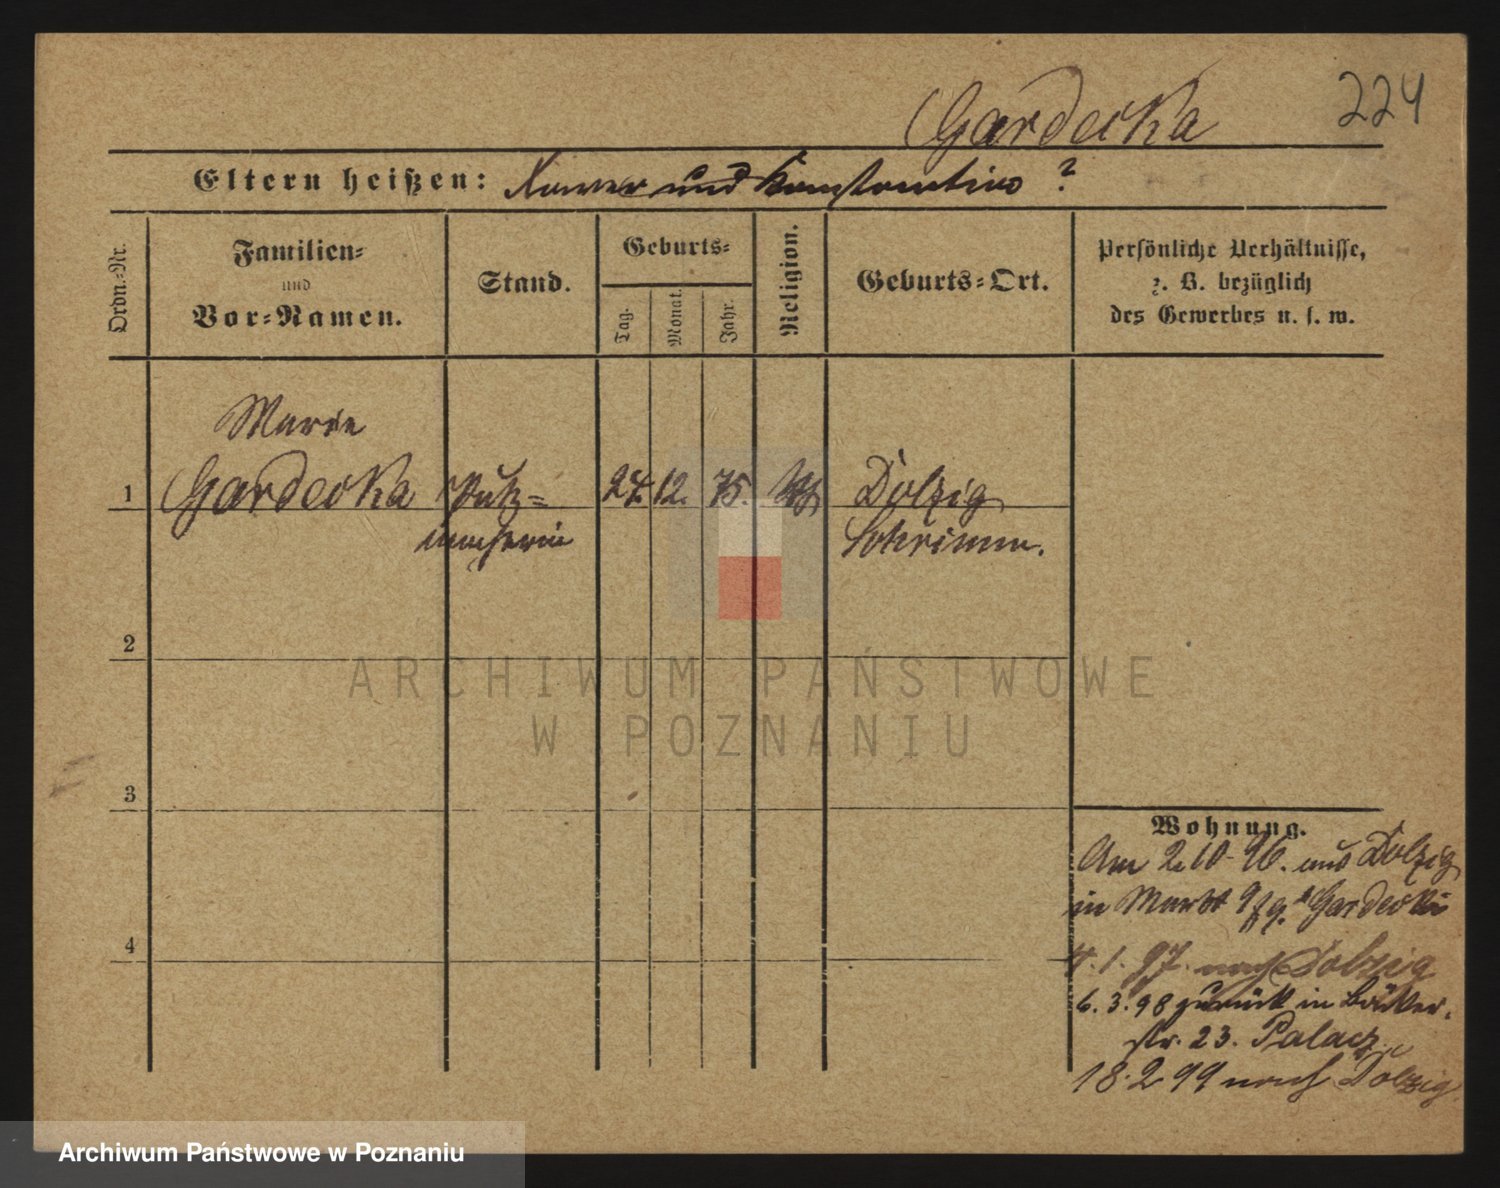 224
Gardecka
Eltern heißen: Xaver und Konstantine ?
Ordn.-Nr.
Familien-
und
Vor-Namen.
Stand.
Geburts-
Tag.
Monat.
Jahr.
Religion.
Geburts-Ort.
Persönliche Verhältnisse,
z. B. bezüglich
des Gewerbes u. s. w.
Marie
1 Gardecka Putz= 24. 12. 75. Dolzig
macherin Schrimm.
2
3
4
Wohnung.
Am 2.10.96. aus Dolzig
in Markt Gardecki
4.1.97. nach Dolzig
6.3.98 zurück in Bäcker-
str. 23. Palacz
18.2.99 nach Dolzig
ARCHIWUM PAŃSTWOWE
W POZNANIU
Archiwum Państwowe w Poznaniu